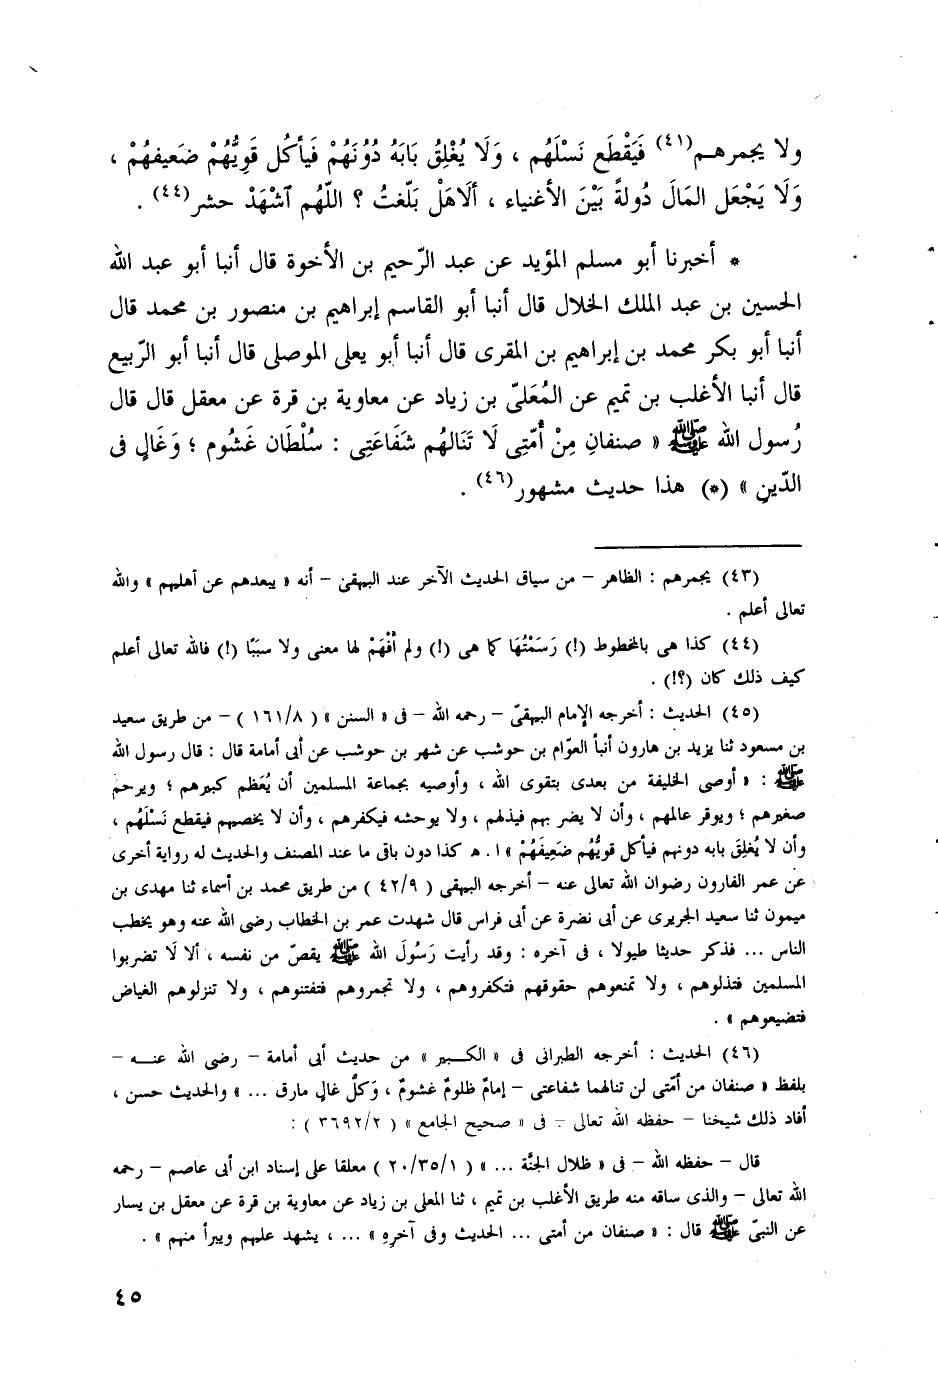 ولا يجمرهـم(٤١) فَيَقْطَع نَسْلَهُم ، وَلَا يُغْلِقُ بَابَهُ دُونَهُمْ فَيأكُل قَوِيُّهُمْ ضَعيفهُمْ ،
وَلَا يَجْعَل المَالَ دُولةً بَيْنَ الأغنياء ، ألَاهَلْ بَلّغتُ ؟ اللّهُم آشْهَدْ حشر(٤٤) .
* أخبرنا أبو مسلم المؤيد عن عبد الرّحيم بن الأخوة قال أنبا أبو عبد الله
الحسين بن عبد الملك الخلال قال أنبا أبو القاسم إبراهيم بن منصور بن محمد قال
أنبا أبو بكر محمد بن إبراهيم بن المقرى قال أنبا أبو يعلى الموصلى قال أنبا أبو الرّبيع
قال أنبا الأغلب بن تميم عن المُعَلىّ بن زياد عن معاوية بن قرة عن معقل قال قال
رُسول الله ﷺ « صنفانِ مِنْ أُمّتِى لَا تَنَالهُم شَفَاعَتِى : سُلْطَان غَشُوم ؛ وَغَالٍ فى
الدّينِ » (*) هذا حديث مشهور(٤٦) .
(٤٣) يجمرهم : الظاهر – من سياق الحديث الآخر عند البيهقىّ – أنه « يبعدهم عن أهليهم » والله
تعالى أعلم .
(٤٤) كذا هى بالمخطوط (!) رَسَمْتُهَا كما هى (!) ولم أفْهَمْ لها معنى ولا سببًا (!) فالله تعالى أعلم
كيف ذلك كان (؟!) .
(٤٥) الحديث : أخرجه الإمام البيهقىّ – رحمه الله – فى « السنن » ( ١٦١/٨ ) – من طريق سعيد
بن مسعود ثنا يزيد بن هارون أنبأ العوّام بن حوشب عن شهر بن حوشب عن أبى أمامة قال : قال رسول الله
ﷺ : « أوصى الخليفة من بعدى بتقوى الله ، وأوصيه بجماعة المسلمين أن يُعَظم كبيرهم ؛ ويرحم
صغيرهم ؛ ويوقر عالمهم ، وأن لا يضر بهم فيذلهم ، ولا يوحشه فيكفرهم ، وأن لا يخصيهم فيقطع نَسْلَهُم ،
وأن لا يُغلِقَ بابه دونهم فيأكل قويُّهُم ضَعِيفَهُمْ » ا . هـ كذا دون باقى ما عند المصنف والحديث له رواية أخرى
عن عمر الفارون رضوان الله تعالى عنه – أخرجه البيهقى ( ٤٢/٩ ) من طريق محمد بن أسماء ثنا مهدى بن
ميمون ثنا سعيد الجريرى عن أبى نضرة عن أبى فراس قال شهدت عمر بن الخطاب رضى الله عنه وهو يخطب
الناس ... فذكر حديثا طيولا ، فى آخره : وقد رأيت رَسُولَ الله ﷺ يقصّ من نفسه ، ألا لَا تضربوا
المسلمين فتذلوهم ، ولا تمنعوهم حقوقهم فتكفروهم ، ولا تجمروهم فتفتنوهم ، ولا تنزلوهم الغياض
فتضيعوهم » .
(٤٦) الحديث : أخرجه الطبرانى فى « الكـــبير » من حديث أبى أمامة – رضى الله عنـــه –
بلفظ « صنفان من أمّتى لن تنالهما شفاعتى – إمامٌ ظلومٌ غشومٌ ، وَكلُّ غالٍ مارق ... » والحديث حسن ،
أفاد ذلك شيخنا – حفظه الله تعالى – فى « صحيح الجامع » ( ٣٦٩٢/٢ ) :
قال – حفظه الله – فى « ظلال الجنَّة ... » ( ٢٠/٣٥/١ ) معلقا على إسناد ابن أبى عاصم – رحمه
الله تعالى – والذى ساقه منه طريق الأغلب بن تميم ، ثنا المعلى بن زياد عن معاوية بن قرة عن معقل بن يسار
عن النبىّ ﷺ قال : « صنفان من أمتى ... الحديث وفى آخرِهِ » ... ، يشهد عليهم ويبرأ منهم » .
٤٥